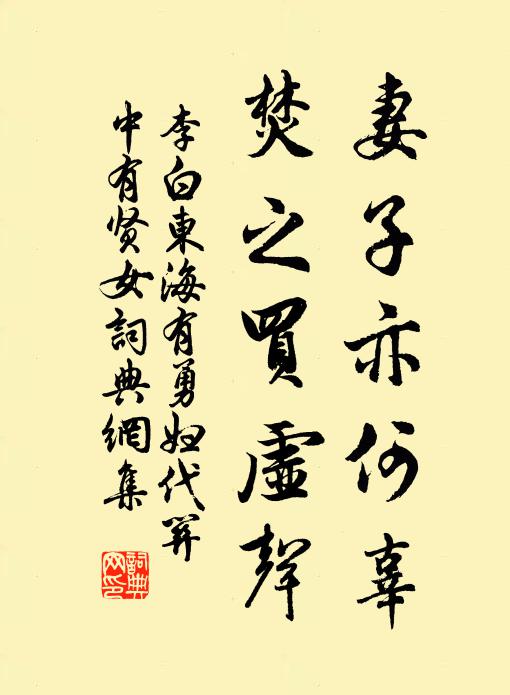 妻子亦何辜
焚之買虛聲
李白東海有勇妇代关
中有贤女詞典網集
詞典
网印